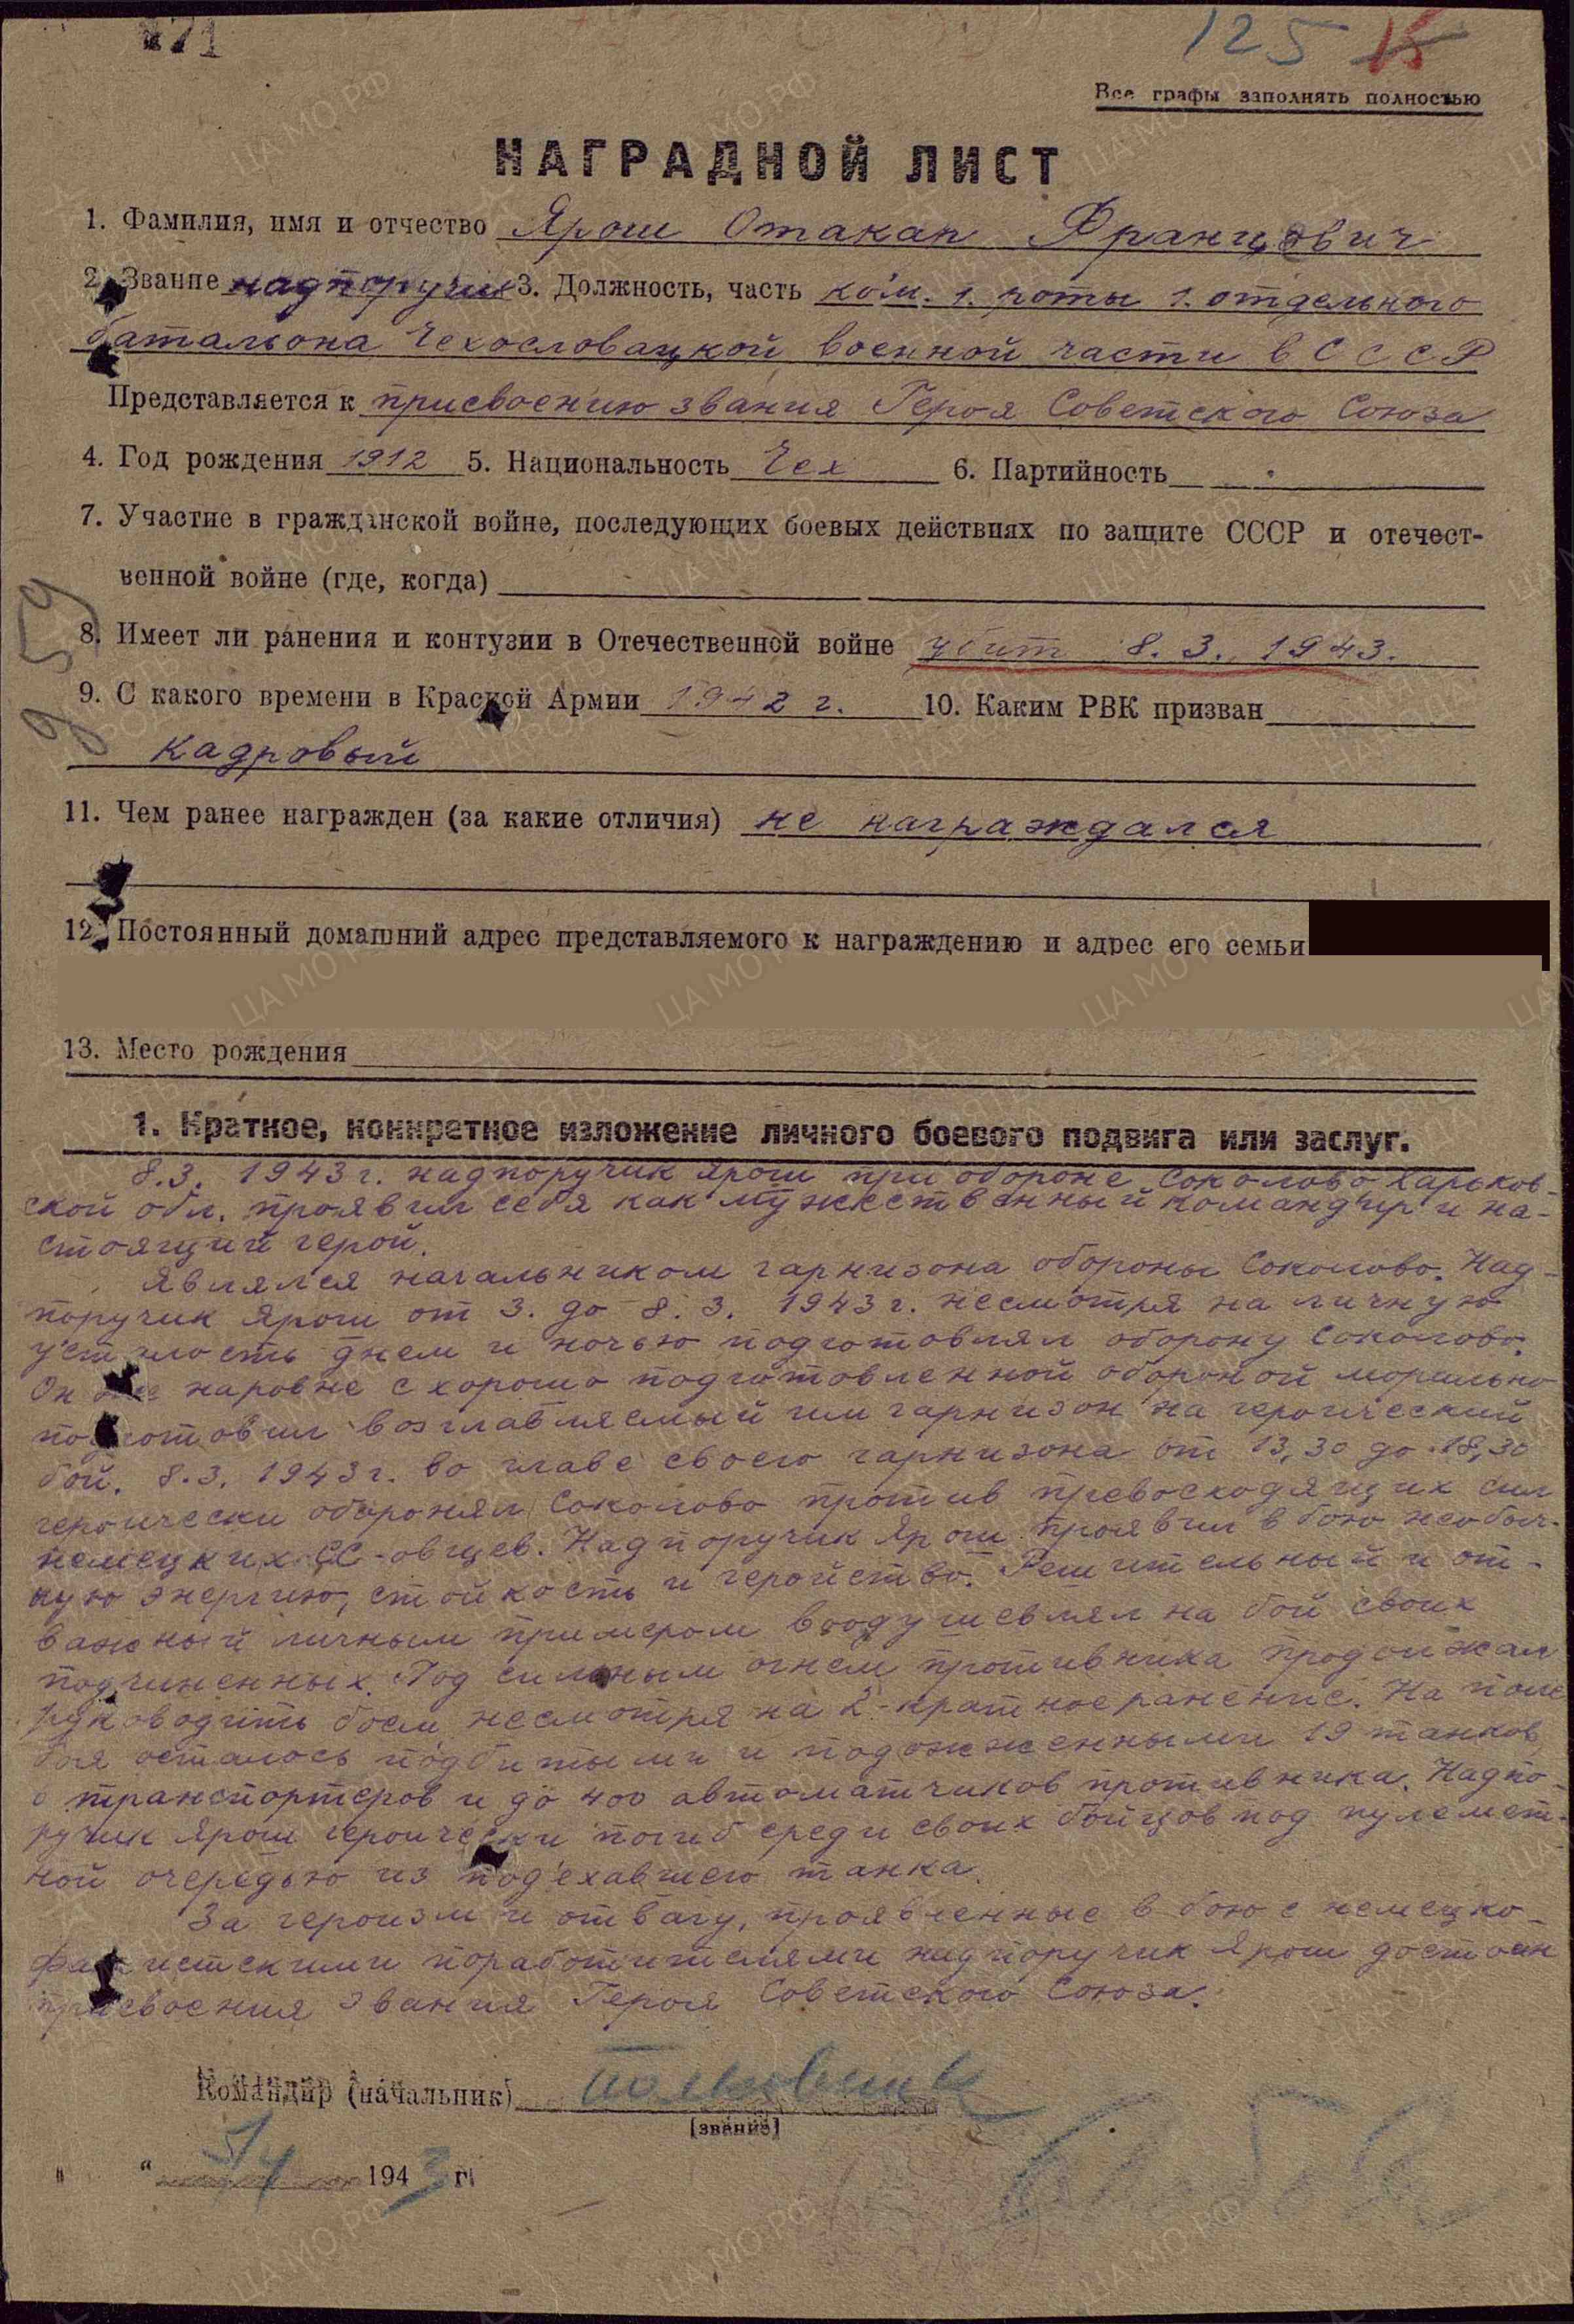 71
125 15
Все графы заполнять полностью
НАГРАДНОЙ ЛИСТ
1. Фамилия, имя и отчество Ярош Отакар Францович
2. Звание надпоручик 3. Должность, часть ком. 1. роты 1. отдельного
батальона Чехословацкой военной части в СССР
Представляется к присвоению звания Героя Советского Союза
4. Год рождения 1912 5. Национальность Чех 6. Партийность
7. Участие в гражданской войне, последующих боевых действиях по защите СССР и отечест-
венной войне (где, когда)
8. Имеет ли ранения и контузии в Отечественной войне убит 8. 3. 1943.
9. С какого времени в Красной Армии 1942 г. 10. Каким РВК призван
кадровый
11. Чем ранее награжден (за какие отличия) не награждался
12. Постоянный домашний адрес представляемого к награждению и адрес его семьи
13. Место рождения
1. Краткое, конкретное изложение личного боевого подвига или заслуг.
8.3. 1943 г. надпоручик Ярош при обороне Соколово Харьков-
ской обл. проявил себя как мужественный командир и на-
стоящий герой.
Являлся начальником гарнизона обороны Соколово. Над-
поручик Ярош от 3. до 8. 3. 1943 г. несмотря на личную
усталость днем и ночью подготовлял оборону Соколово.
Он наровне с хорошо подготовленной обороной морально
подготовил возглавляемый им гарнизон на героический
бой. 8.3. 1943 г. во главе своего гарнизона от 13,30 до 18,30
героически оборонял Соколово против превосходящих сил
немецких СС-овцев. Надпоручик Ярош проявил в бою необыч-
ную энергию, стойкость и геройство. Решительный и от-
важный личным примером воодушевлял на бой своих
подчиненных. Под сильным огнем противника продолжал
руководить боем несмотря на 2-кратное ранение. На поле
боя осталось подбитыми и подожженными 19 танков,
6 транспортеров и до 400 автоматчиков противника. Надпо-
ручик Ярош героически погиб среди своих бойцов под пулемет-
ной очередью из подъехавшего танка.
За героизм и отвагу, проявленные в бою с немецко-
фашистскими поработителями надпоручик Ярош достоен
присвоения звания Героя Советского Союза.
Командир (начальник) полковник
(звание)
" " 5/4 1943 г.
59
9
ЦА МО РФ